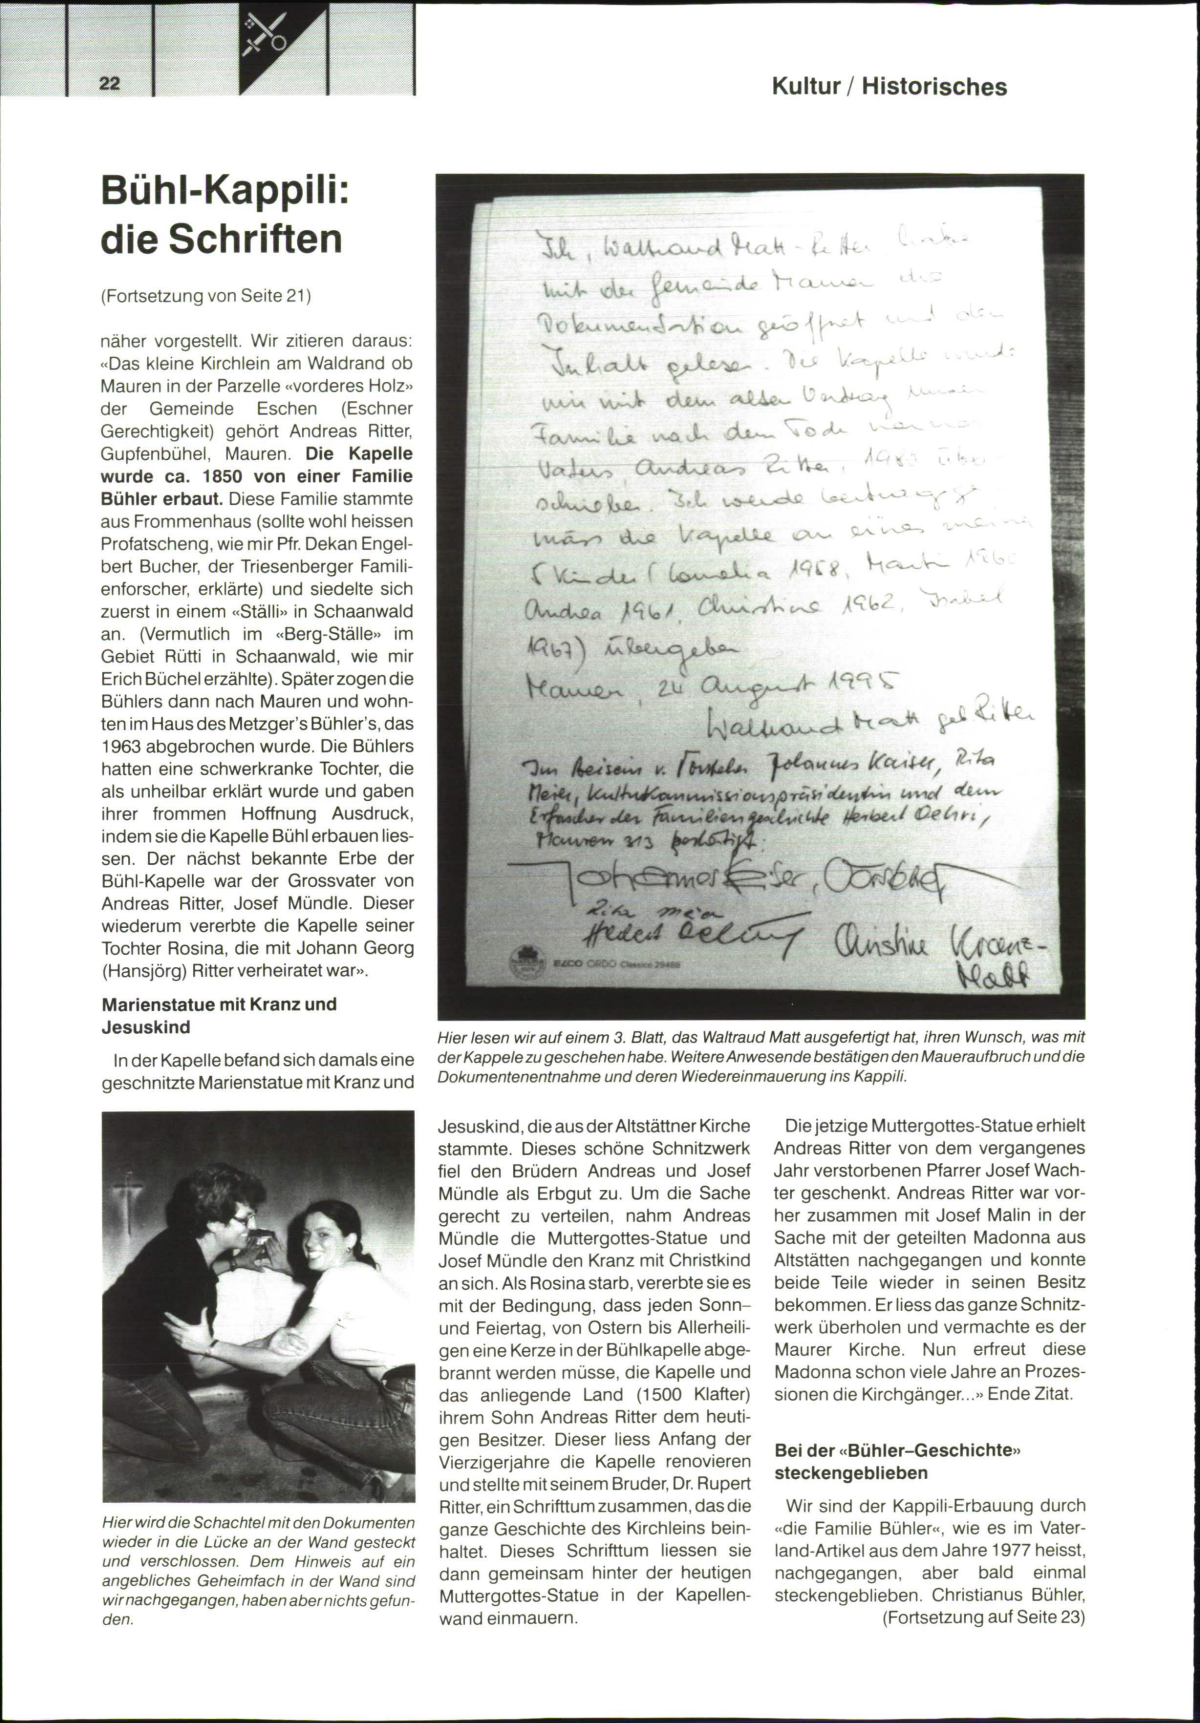 22
Kultur / Historisches
Bühl-Kappili:
die Schriften
(Fortsetzung von Seite 21)
näher vorgestellt. Wir zitieren daraus:
«Das kleine Kirchlein am Waldrand ob
Mauren in der Parzelle «vorderes Holz»
der Gemeinde Eschen (Eschner
Gerechtigkeit) gehört Andreas Ritter,
Gupfenbühel, Mauren. Die Kapelle
wurde ca. 1850 von einer Familie
Bühler erbaut. Diese Familie stammte
aus Frommenhaus (sollte wohl heissen
Profatscheng, wie mir Pfr. Dekan Engel-
bert Bucher, der Triesenberger Famili-
enforscher, erklärte) und siedelte sich
zuerst in einem «Ställi» in Schaanwald
an. (Vermutlich im «Berg-Ställe» im
Gebiet Rütti in Schaanwald, wie mir
Erich Büchel erzählte). Später zogen die
Bühlers dann nach Mauren und wohn-
ten im Haus des Metzger's Bühler's, das
1963 abgebrochen wurde. Die Bühlers
hatten eine schwerkranke Tochter, die
als unheilbar erklärt wurde und gaben
ihrer frommen Hoffnung Ausdruck,
indem sie die Kapelle Bühl erbauen lies-
sen. Der nächst bekannte Erbe der
Bühl-Kapelle war der Grossvater von
Andreas Ritter, Josef Mündle. Dieser
wiederum vererbte die Kapelle seiner
Tochter Rosina, die mit Johann Georg
(Hansjörg) Ritter verheiratet war».
Marienstatue mit Kranz und
Jesuskind
In der Kapelle befand sich damals eine
geschnitzte Marienstatue mit Kranz und
Ich, Waltraud Matt-Ritter
mit der Gemeinde Mauren die
Dokumentation geöffnet und den
Inhalt gelesen. Die Kapelle wurde
mir mit dem alten Vertrag
Familie nach dem Tode
Vaters, Andreas Ritter, 1983 über
schrieben. Ich werde
mäss die Kapelle an eines meiner
5 Kinder (Cornelia 1958, Martin 196
Andrea 1961, Christine 1962, Isabel
1967) übergeben
Mauren, 24 August 1995
Waltraud Matt geb Ritter
Im Beisein v. Vorsteher Johannes Kaiser, Rita
Meier, Kulturkommissionspräsidentin und dem
Erforscher der Familiengeschichte Herbert Oehri,
Mauren 313 bestätigt:
Johannes Kaiser, Vorsteher
Rita Meier
Herbert Oehri
Christine Kranz-
Matt
ELCO ORDO Classico 29489
Hier lesen wir auf einem 3. Blatt, das Waltraud Matt ausgefertigt hat, ihren Wunsch, was mit
der Kappele zu geschehen habe. Weitere Anwesende bestätigen den Maueraufbruch und die
Dokumentenentnahme und deren Wiedereinmauerung ins Kappili.
Hier wird die Schachtel mit den Dokumenten
wieder in die Lücke an der Wand gesteckt
und verschlossen. Dem Hinweis auf ein
angebliches Geheimfach in der Wand sind
wir nachgegangen, haben aber nichts gefun-
den.
Jesuskind, die aus der Altstättner Kirche
stammte. Dieses schöne Schnitzwerk
fiel den Brüdern Andreas und Josef
Mündle als Erbgut zu. Um die Sache
gerecht zu verteilen, nahm Andreas
Mündle die Muttergottes-Statue und
Josef Mündle den Kranz mit Christkind
an sich. Als Rosina starb, vererbte sie es
mit der Bedingung, dass jeden Sonn–
und Feiertag, von Ostern bis Allerheili-
gen eine Kerze in der Bühlkapelle abge-
brannt werden müsse, die Kapelle und
das anliegende Land (1500 Klafter)
ihrem Sohn Andreas Ritter dem heuti-
gen Besitzer. Dieser liess Anfang der
Vierzigerjahre die Kapelle renovieren
und stellte mit seinem Bruder, Dr. Rupert
Ritter, ein Schrifttum zusammen, das die
ganze Geschichte des Kirchleins bein-
haltet. Dieses Schrifttum liessen sie
dann gemeinsam hinter der heutigen
Muttergottes-Statue in der Kapellen-
wand einmauern.
Die jetzige Muttergottes-Statue erhielt
Andreas Ritter von dem vergangenes
Jahr verstorbenen Pfarrer Josef Wach-
ter geschenkt. Andreas Ritter war vor-
her zusammen mit Josef Malin in der
Sache mit der geteilten Madonna aus
Altstätten nachgegangen und konnte
beide Teile wieder in seinen Besitz
bekommen. Er liess das ganze Schnitz-
werk überholen und vermachte es der
Maurer Kirche. Nun erfreut diese
Madonna schon viele Jahre an Prozes-
sionen die Kirchgänger...» Ende Zitat.
Bei der «Bühler–Geschichte»
steckengeblieben
Wir sind der Kappili-Erbauung durch
«die Familie Bühler«, wie es im Vater-
land-Artikel aus dem Jahre 1977 heisst,
nachgegangen, aber bald einmal
steckengeblieben. Christianus Bühler,
(Fortsetzung auf Seite 23)